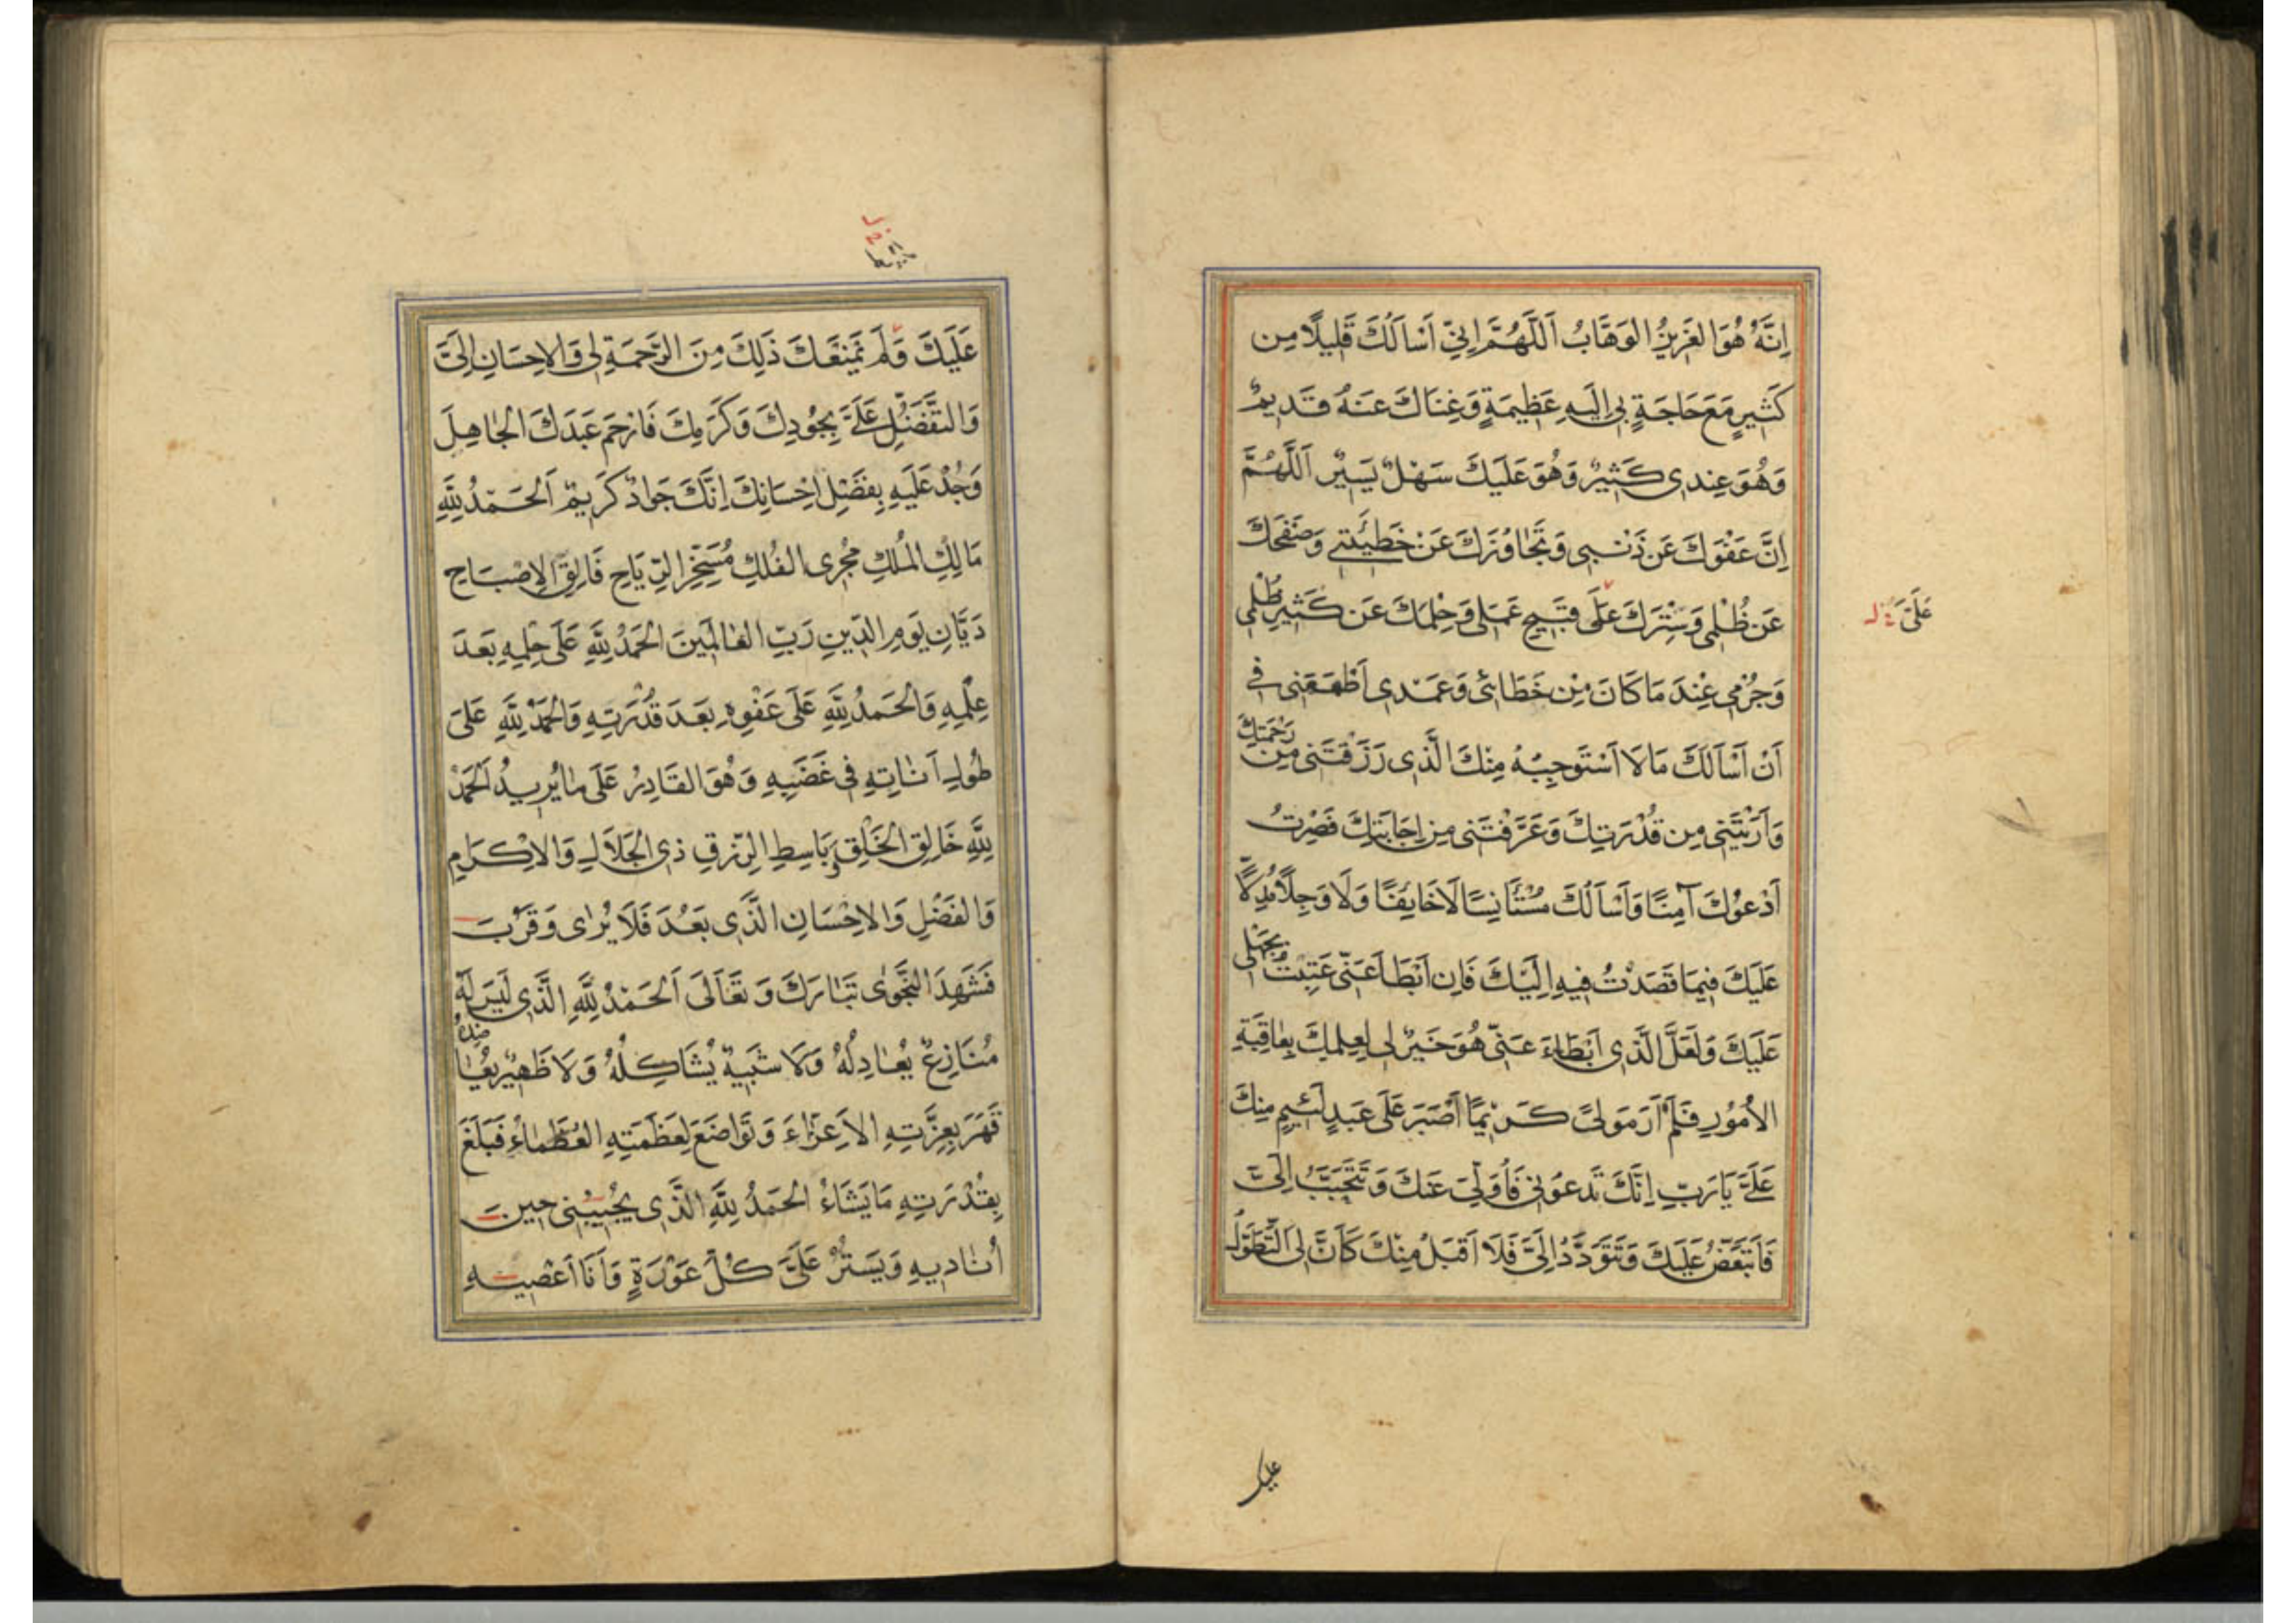 اِنَّهُ هُوَ العَزِيزُ الوَهَّابُ اَللّٰهُمَّ اِنِّي اَسْاَلُكَ قَلِيلًا مِن
كَثِيرٍ مَعَ حَاجَةٍ بِي اِلَيهِ عَظِيمَةٍ وَغِنَاكَ عَنهُ قَدِيمٌ
وَهُوَ عِندِى كَثِيرٌ وَهُوَ عَلَيكَ سَهْلٌ يَسِيْرٌ اَللّٰهُمَّ
اِنَّ عَفْوَكَ عَن ذَنْبِى وَتَجَاوُزَكَ عَنْ خَطِيئَتِي وَصَفْحَكَ
عَن ظُلْمِى وَسِتْرَكَ عَلَى قَبِيحِ عَمَلِى وَحِلمَكَ عَن كَثِيرِ ظُلْمِى
عَلَىَّ
وَجُرْمِى عِنْدَ مَا كَانَ مِنْ خَطَائِى وَعَمَدِى اَطْمَعَنِى فِي
اَنْ اَسْاَلَكَ مَا لَا اَسْتَوجِبُهُ مِنْكَ الَّذِى رَزَقْتَنِى مِن رَحْمَتِكَ
وَاَرَيْتَنِى مِن قُدْرَتِكَ وَعَرَّفْتَنِى مِن اِجَابَتِكَ فَصِرْتُ
اَدْعُوْكَ آمِنًا وَاَسْاَلُكَ مُسْتَأنِسًا لَا خَايِفًا وَلَا وَجِلًا مُدِلًّا
عَلَيكَ فِيمَا قَصَدْتُ فِيهِ اِلَيْكَ فَاِن اَبْطَاَ عَنِّى عَتِبْتُ بِجَهْلِى
عَلَيكَ وَلَعَلَّ الَّذِى اَبْطَاءَ عَنِّى هُوَ خَيْرٌ لِى لِعِلمِكَ بِعَاقِبَةِ
الاُمُوْرِ فَلَمْ اَرَ مَولىً كَرِيْمًا اَصْبَرَ عَلَى عَبدٍ لَئِيمٍ مِنكَ
عَلَىَّ يَا رَبِّ اِنَّكَ تَدعُوْنِى فَاُوَلِّى عَنكَ وَتَتَحَبَّبُ اِلَىَّ
فَاَتَبَغَّضُ عَلَيكَ وَتَتَوَدَّدُ اِلَىَّ فَلَا اَقبَلُ مِنْكَ كَاَنَّ لِىَ التَّطَوُّلَ
عليك
عَلَيكَ وَلَم يَمنَعكَ ذَلِكَ مِنَ الرَّحمَةِ لِى وَالاِحسَانِ اِلَىَّ
وَالتَّفَضُّلِ عَلَىَّ بِجُودِكَ وَكَرَمِكَ فَارْحَم عَبدَكَ الجَاهِلَ
وَجُدْ عَلَيهِ بِفَضْلِ اِحْسَانِكَ اِنَّكَ جَوادٌ كَرِيمٌ اَلحَمدُ لِلّٰهِ
مَالِكِ المُلكِ مُجْرِى الفُلكِ مُسَخِّرِ الرِّيَاحِ فَالِقِ الاِصْبَاحِ
دَيَّانِ يَومِ الدِّينِ رَبِّ العَالَمِينَ الحَمدُ لِلّٰهِ عَلَى حِلمِهِ بَعدَ
عِلْمِهِ وَالحَمدُ لِلّٰهِ عَلَى عَفْوِهِ بَعدَ قُدْرَتِهِ وَالحَمدُ لِلّٰهِ عَلَى
طُولِ اَنَاتِهِ فِى غَضَبِهِ وَهُوَ القَادِرُ عَلَى مَا يُرِيدُ اَلحَمدُ
لِلّٰهِ خَالِقِ الخَلْقِ وَبَاسِطِ الرِّزقِ ذِى الجَلَالِ وَالاِكرَامِ
وَالفَضْلِ وَالاِحْسَانِ الَّذِى بَعُدَ فَلَا يُرَاى وَقَرُبَ
فَشَهِدَ النَّجْوٰى تَبَارَكَ وَتَعَالَى اَلحَمدُ لِلّٰهِ الَّذِى لَيسَ لَهُ
مُنَازِعٌ يُعَادِلُهُ وَلَا شَبِيهٌ يُشَاكِلُهُ وَلَا ظَهِيرٌ يُعَاضِدُهُ
قَهَرَ بِعِزَّتِهِ الاَعِزَّاءَ وَتَوَاضَعَ لِعَظَمَتِهِ العُظَمَاءُ فَبَلَغَ
بِقُدْرَتِهِ مَا يَشَاءُ الحَمدُ لِلّٰهِ الَّذِى يُجِيبُنِى حِينَ
اُنَادِيهِ وَيَستُرُ عَلَىَّ كُلَّ عَوْرَةٍ وَاَنَا اَعْصِيهِ